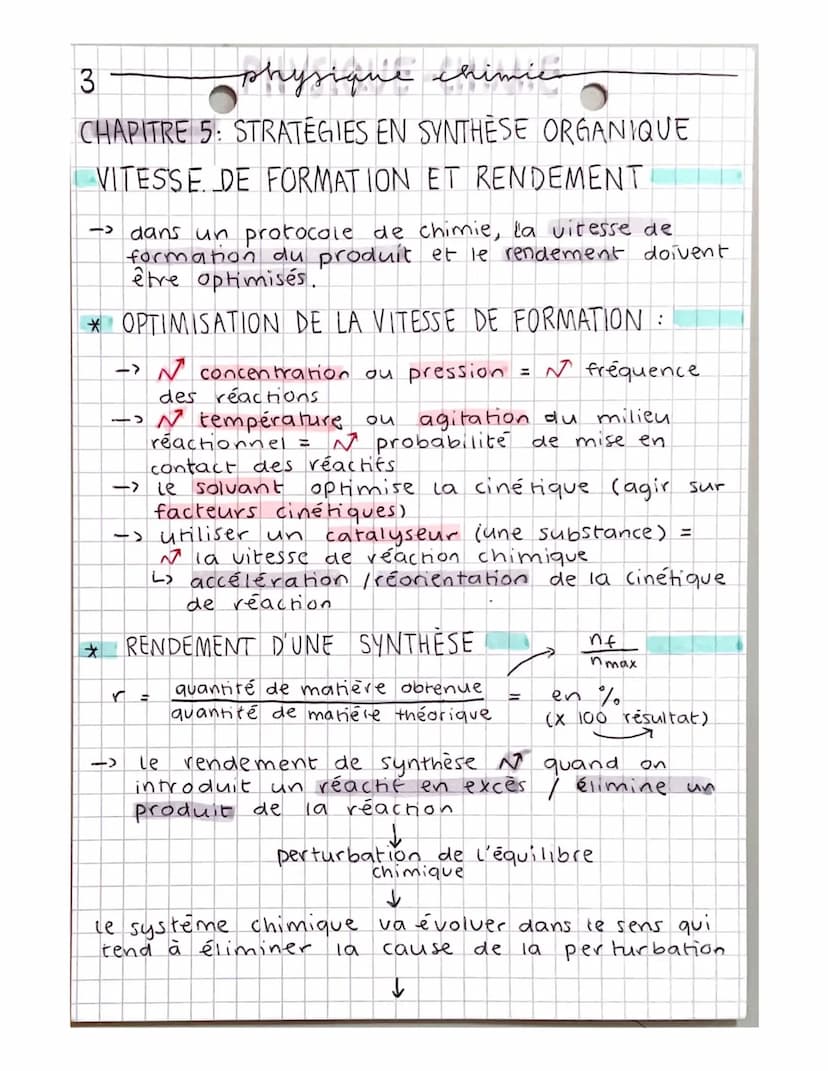 3 physique chimie
CHAPITRE 5: STRATÉGIES EN SYNTHÈSE ORGANIQUE
VITESSE DE FORMATION ET RENDEMENT
-> dans un protocole de chimie, la vitesse de
formation du produit et le rendement doivent
être optimisés.
* OPTIMISATION DE LA VITESSE DE FORMATION :
-> ↗ concentration ou pression = ↗ fréquence
des réactions
-> ↗ température ou agitation du milieu
réactionnel = ↗ probabilité de mise en
contact des réactifs
-> le solvant optimise la cinétique (agir sur
facteurs cinétiques)
-> utiliser un catalyseur (une substance) =
↗ la vitesse de réaction chimique
↳ accélération / réorientation de la cinétique
de réaction
* RENDEMENT D'UNE SYNTHÈSE
nf
nmax
r = quantité de matière obtenue = en %
quantité de matière théorique (x 100 résultat)
-> le rendement de synthèse ↗ quand on
introduit un réactif en excès / élimine un
produit de la réaction
↓
perturbation de l'équilibre
chimique
↓
le système chimique va évoluer dans le sens qui
tend à éliminer la cause de la perturbation
↓